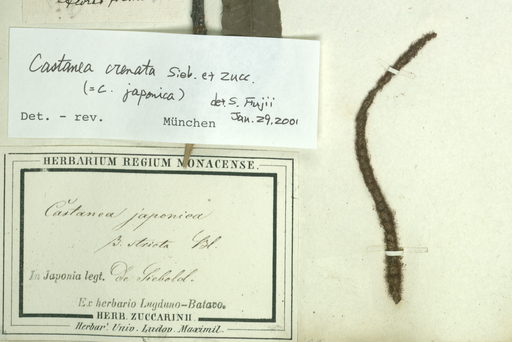 Castanea crenata Sieb. et Zucc.
(= C. japonica)
det. S. Fujii
Det. - rev.
München
Jan. 29, 2001
HERBARIUM REGIUM MONACENSE.
Castanea japonica
β. stricta Bl.
In Japonia legt. De Siebold.
Ex herbario Lugduno-Batavo.
HERB. ZUCCARINII.
Herbar. Univ. Ludov. Maximil.